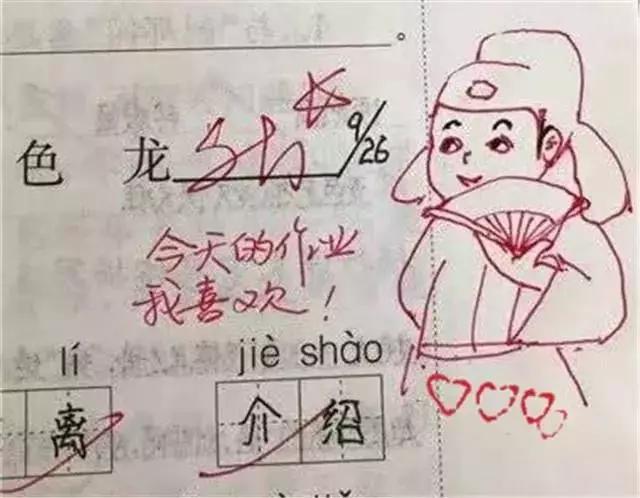 。
色 龙 9/26
今天的作业
我喜欢！
lí jiè shào
离 介 绍